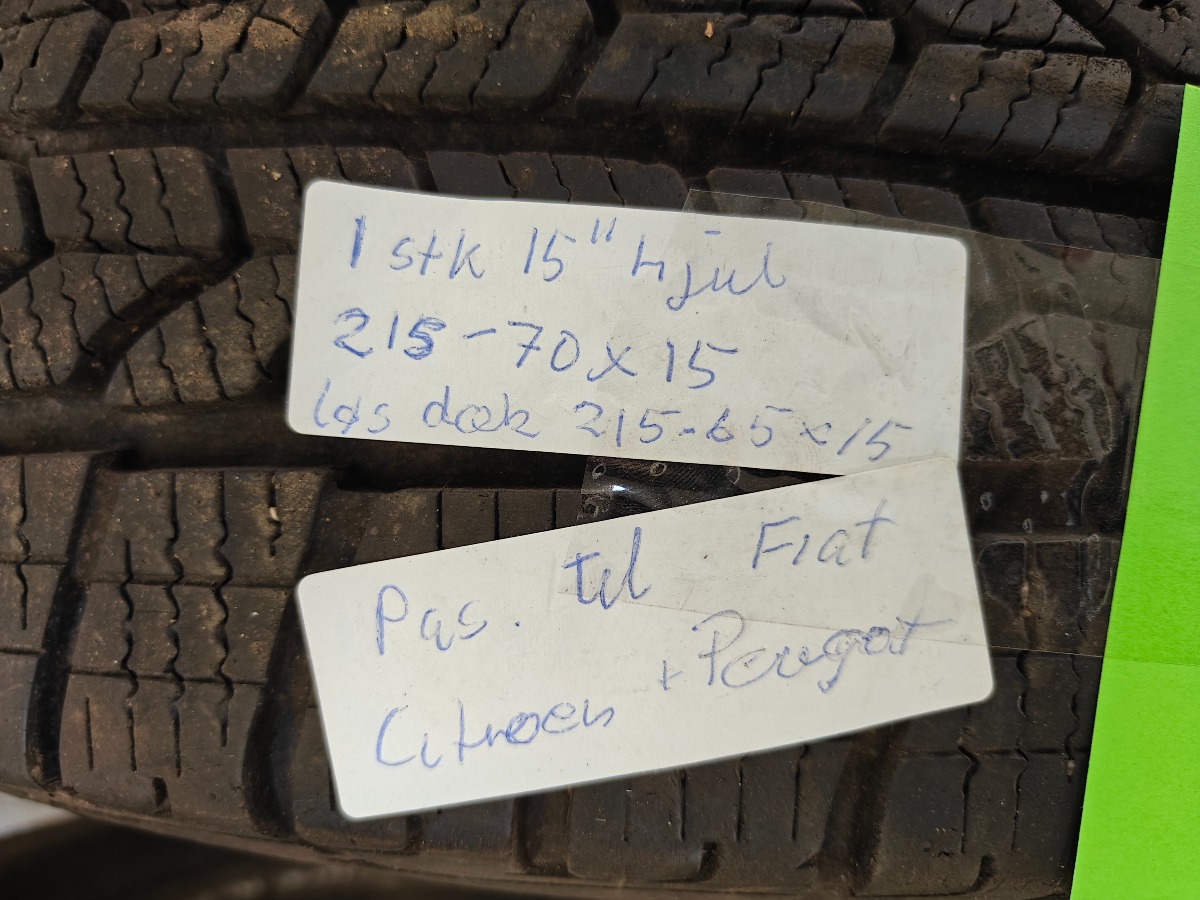 1 stk 15" hjul
215-70x15
løs dæk 215-65x15
Pas. til Fiat
Citroen + Peugot